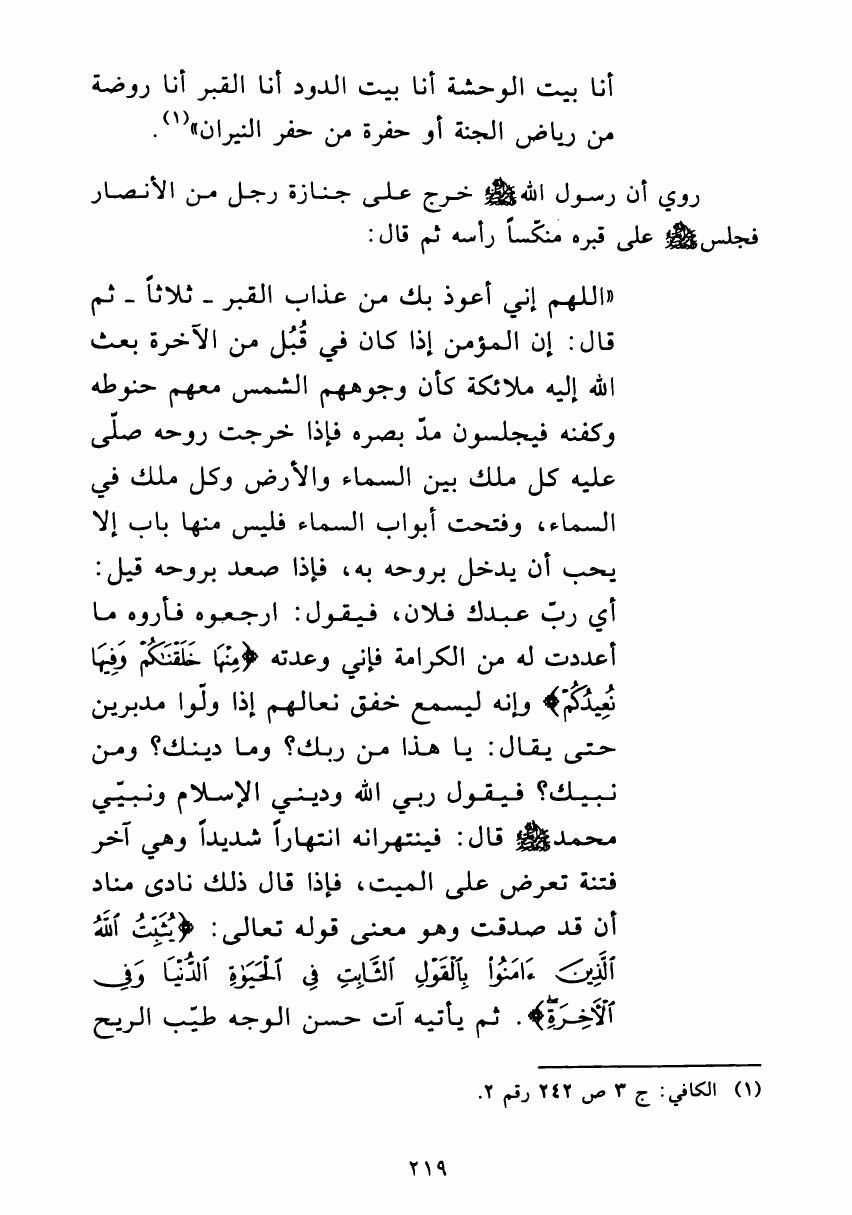 أنا بيت الوحشة أنا بيت الدود أنا القبر أنا روضة
من رياض الجنة أو حفرة من حفر النيران»(١).
روي أن رسول الله ﷺ خرج على جنازة رجل من الأنصار
فجلس ﷺ على قبره منكّساً رأسه ثم قال:
«اللهم إني أعوذ بك من عذاب القبر ـ ثلاثاً ـ ثم
قال: إن المؤمن إذا كان في قُبُل من الآخرة بعث
الله إليه ملائكة كأن وجوههم الشمس معهم حنوطه
وكفنه فيجلسون مدّ بصره فإذا خرجت روحه صلّى
عليه كل ملك بين السماء والأرض وكل ملك في
السماء، وفتحت أبواب السماء فليس منها باب إلا
يحب أن يدخل بروحه به، فإذا صعد بروحه قيل:
أي ربّ عبدك فلان، فيقول: ارجعوه فأروه ما
أعددت له من الكرامة فإني وعدته ﴿مِنْهَا خَلَقْنَٰكُمْ وَفِيهَا
نُعِيدُكُمْ﴾ وإنه ليسمع خفق نعالهم إذا ولّوا مدبرين
حتى يقال: يا هذا من ربك؟ وما دينك؟ ومن
نبيك؟ فيقول ربي الله وديني الإسلام ونبيّي
محمد ﷺ قال: فينتهرانه انتهاراً شديداً وهي آخر
فتنة تعرض على الميت، فإذا قال ذلك نادى مناد
أن قد صدقت وهو معنى قوله تعالى: ﴿يُثَبِّتُ ٱللَّهُ
ٱلَّذِينَ ءَامَنُوا۟ بِٱلْقَوْلِ ٱلثَّابِتِ فِى ٱلْحَيَوٰةِ ٱلدُّنْيَا وَفِى
ٱلْءَاخِرَةِۖ﴾. ثم يأتيه آت حسن الوجه طيّب الريح
(١) الكافي: ج ٣ ص ٢٤٢ رقم ٢.
٢١٩